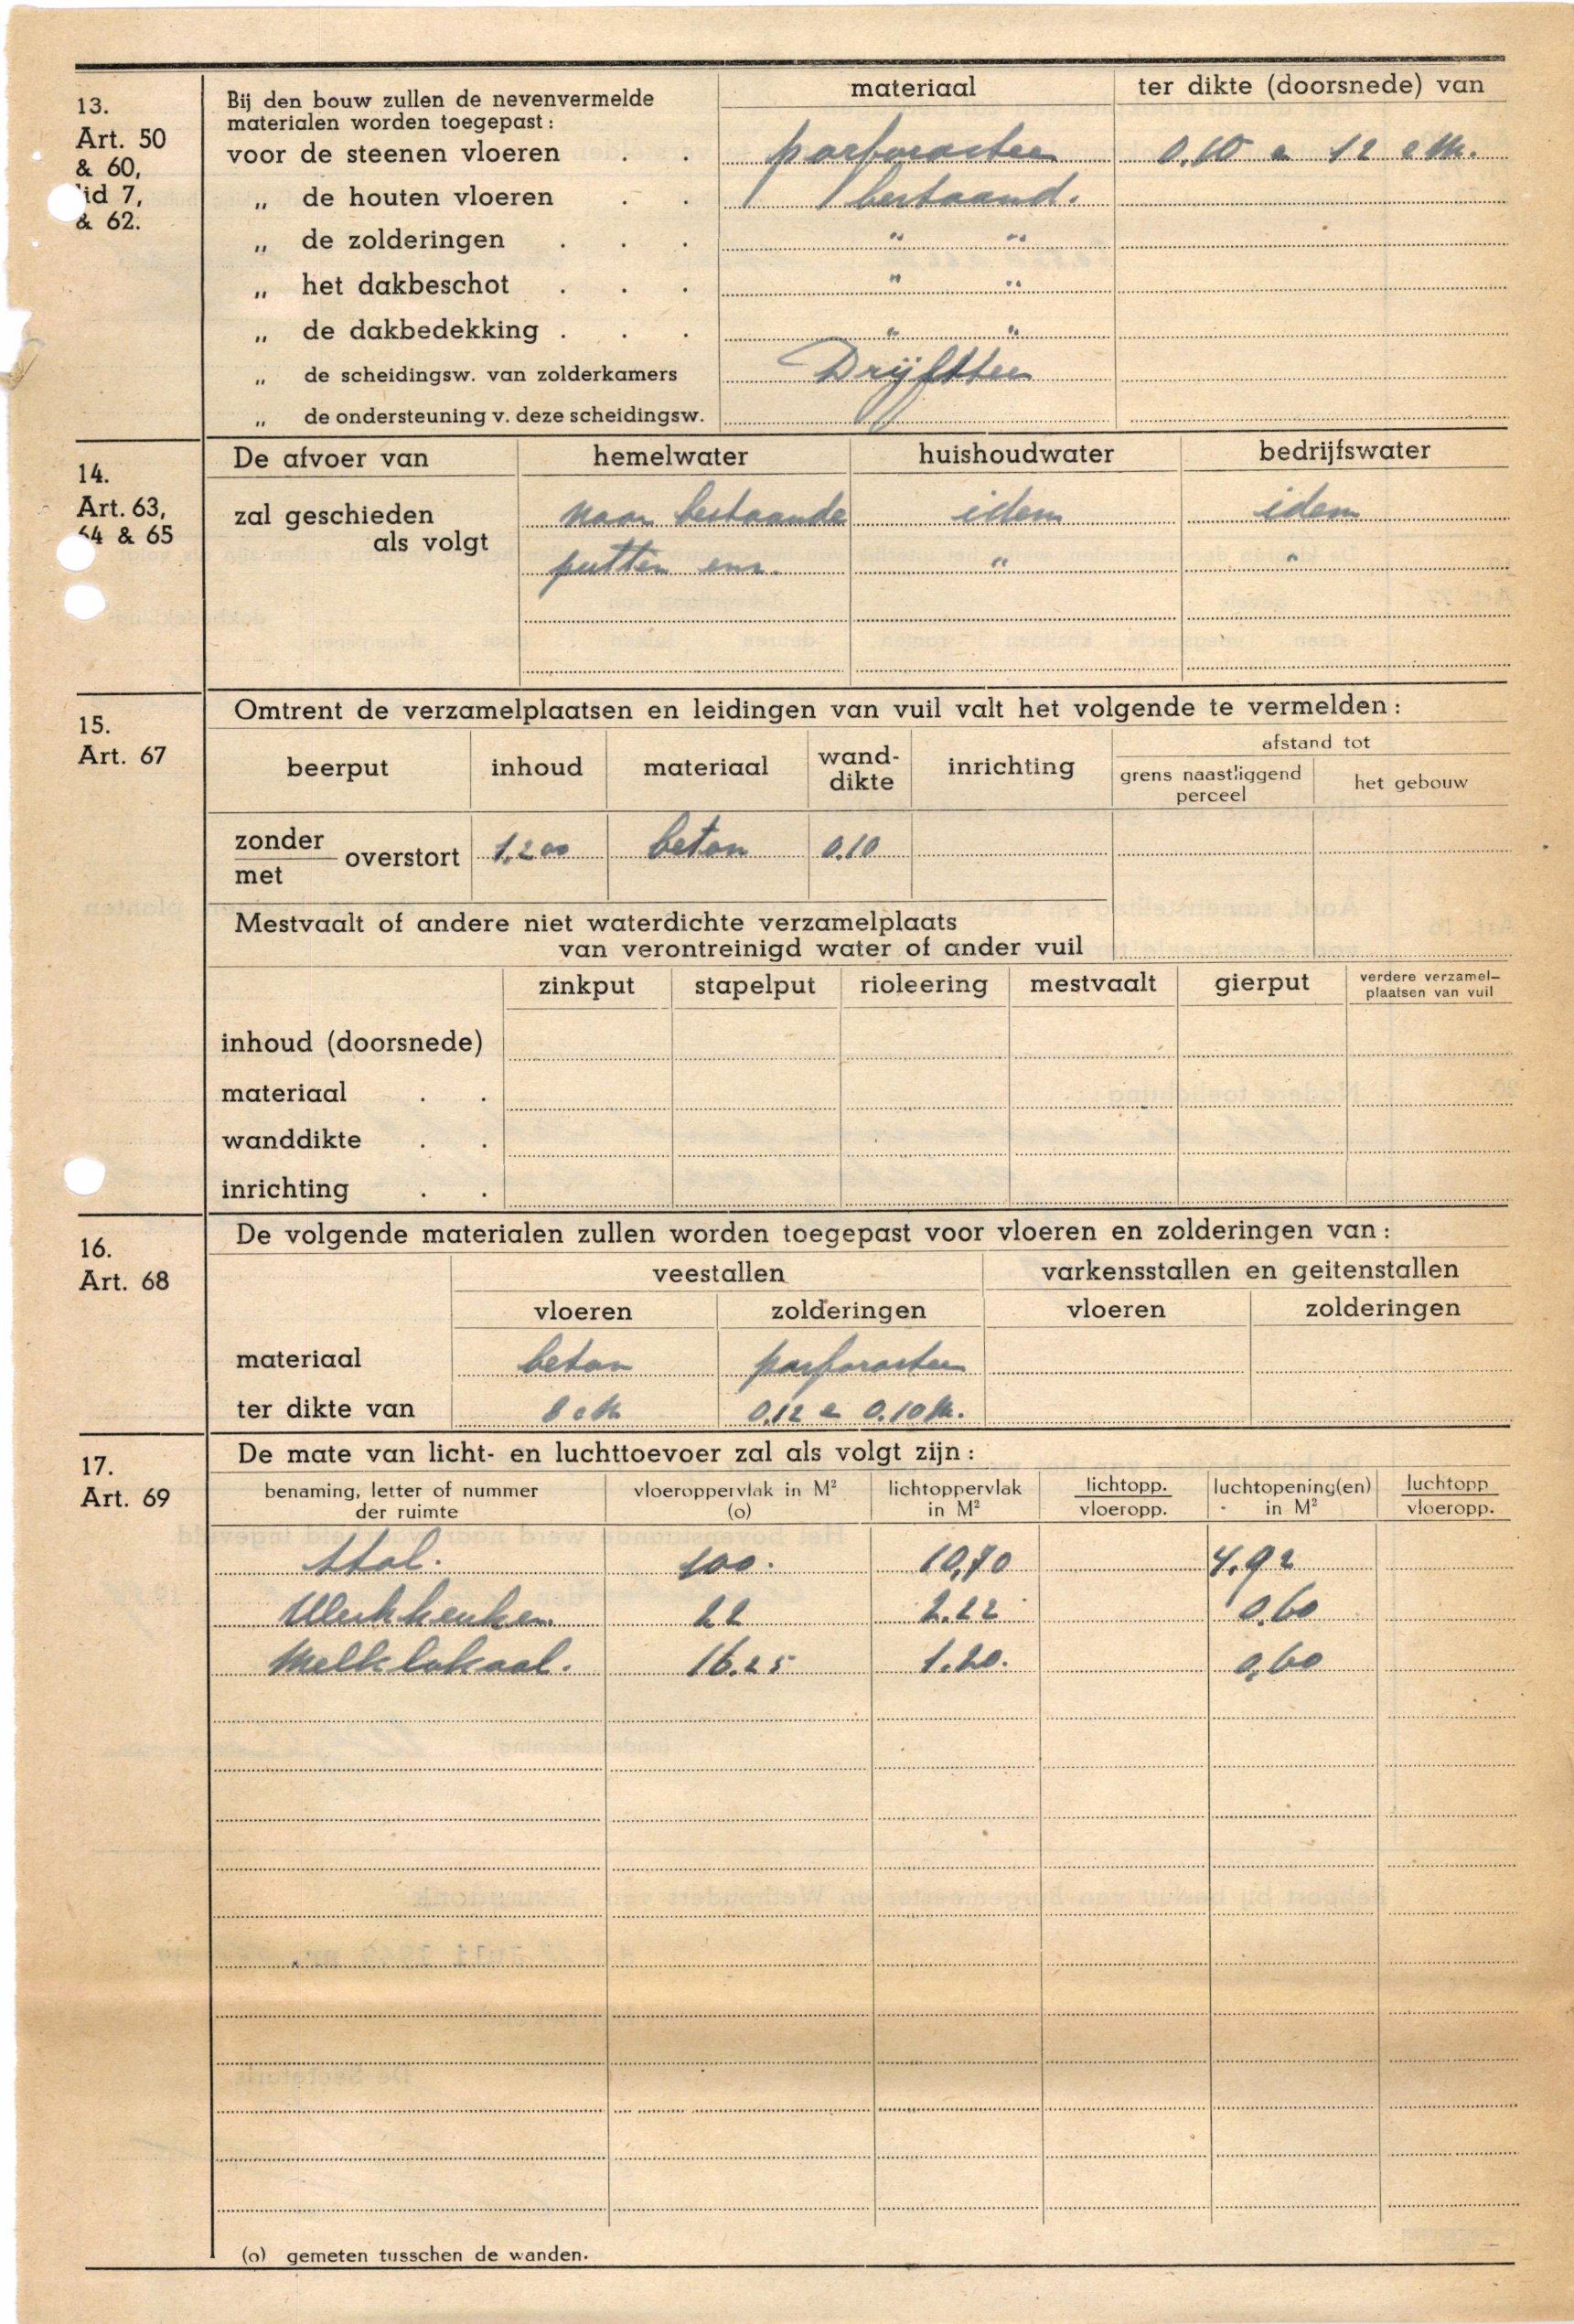 13.
Art. 50
& 60,
lid 7,
& 62.
Bij den bouw zullen de nevenvermelde
materialen worden toegepast:
materiaal
ter dikte (doorsnede) van
voor de steenen vloeren . . porforosteen 0.10 a 12 cM.
„ de houten vloeren . . bestaand.
„ de zolderingen . . . " "
„ het dakbeschot . . . " "
„ de dakbedekking . . . " "
„ de scheidingsw. van zolderkamers Drijfsteen
„ de ondersteuning v. deze scheidingsw.
14.
Art. 63,
64 & 65
De afvoer van hemelwater huishoudwater bedrijfswater
zal geschieden naar bestaande idem idem
als volgt
putten enz. " "
15.
Art. 67
Omtrent de verzamelplaatsen en leidingen van vuil valt het volgende te vermelden:
beerput inhoud materiaal wand-
dikte inrichting afstand tot
grens naastliggend
perceel het gebouw
zonder
met overstort 1.200 beton 0.10
Mestvaalt of andere niet waterdichte verzamelplaats
van verontreinigd water of ander vuil
zinkput stapelput rioleering mestvaalt gierput verdere verzamel-
plaatsen van vuil
inhoud (doorsnede)
materiaal . .
wanddikte . .
inrichting . .
16.
Art. 68
De volgende materialen zullen worden toegepast voor vloeren en zolderingen van:
veestallen varkensstallen en geitenstallen
vloeren zolderingen vloeren zolderingen
materiaal beton porforosteen
ter dikte van 8 cM 0.12 a 0.10 M.
17.
Art. 69
De mate van licht- en luchttoevoer zal als volgt zijn:
benaming, letter of nummer
der ruimte
vloeroppervlak in M²
(o)
lichtoppervlak
in M²
lichtopp.
vloeropp.
luchtopening(en)
in M²
luchtopp
vloeropp.
Stal. 100. 10,70 4.92
Werkkeuken. 22 2.22 0.60
Melklokaal. 16.25 1.20. 0,60
(o) gemeten tusschen de wanden.